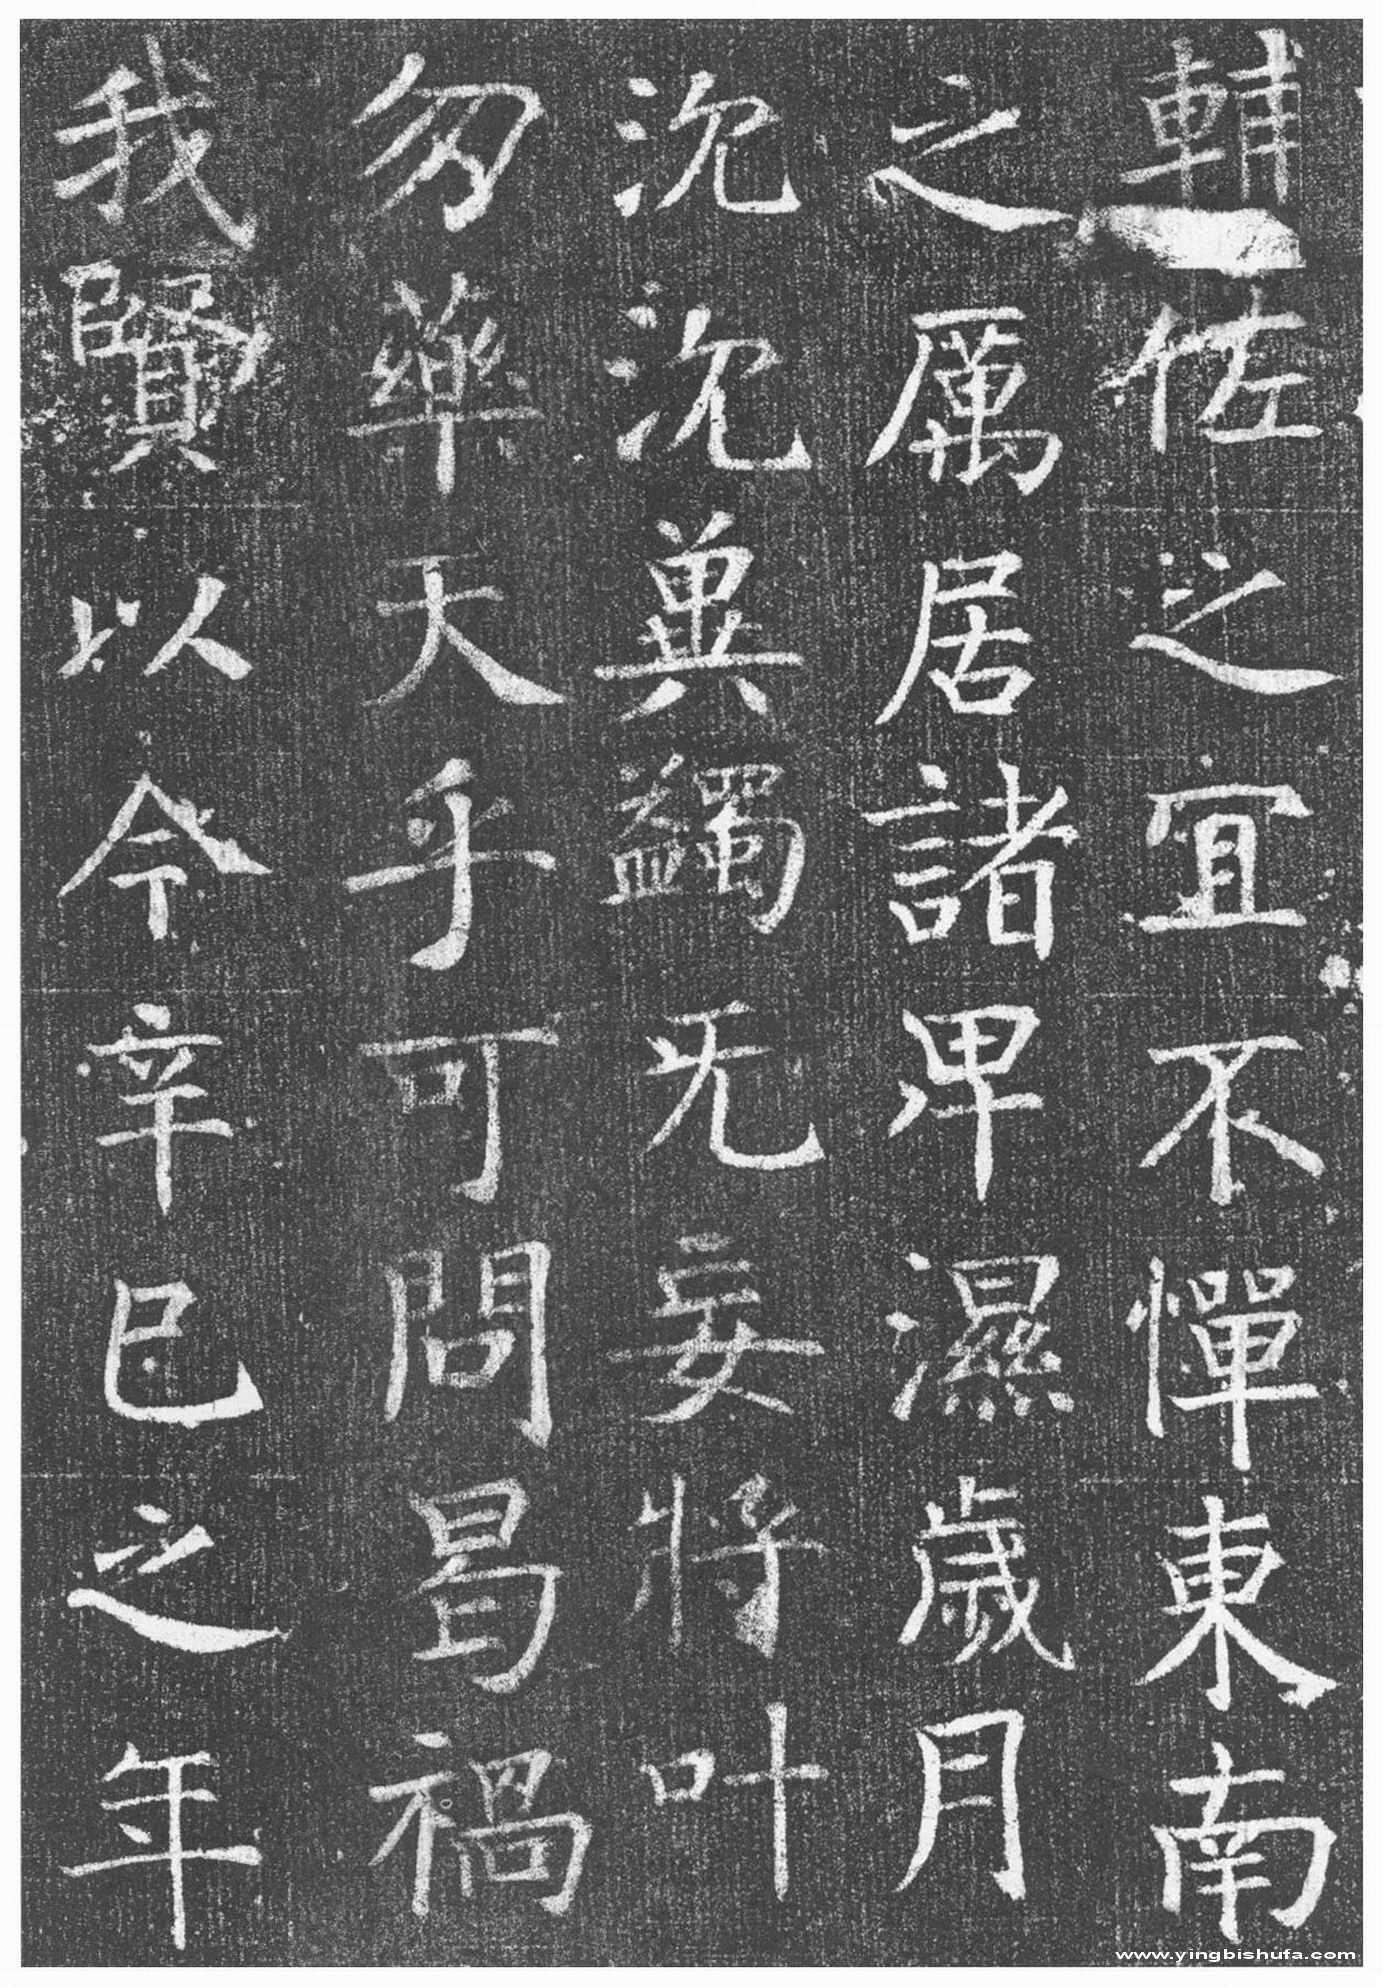 輔佐之冝不憚東南
之厲居諸卑濕歲月
沉沉冀蠲无妄將叶
勿藥天乎可問曷禍
我賢以今辛巳之年
www.yingbishufa.com